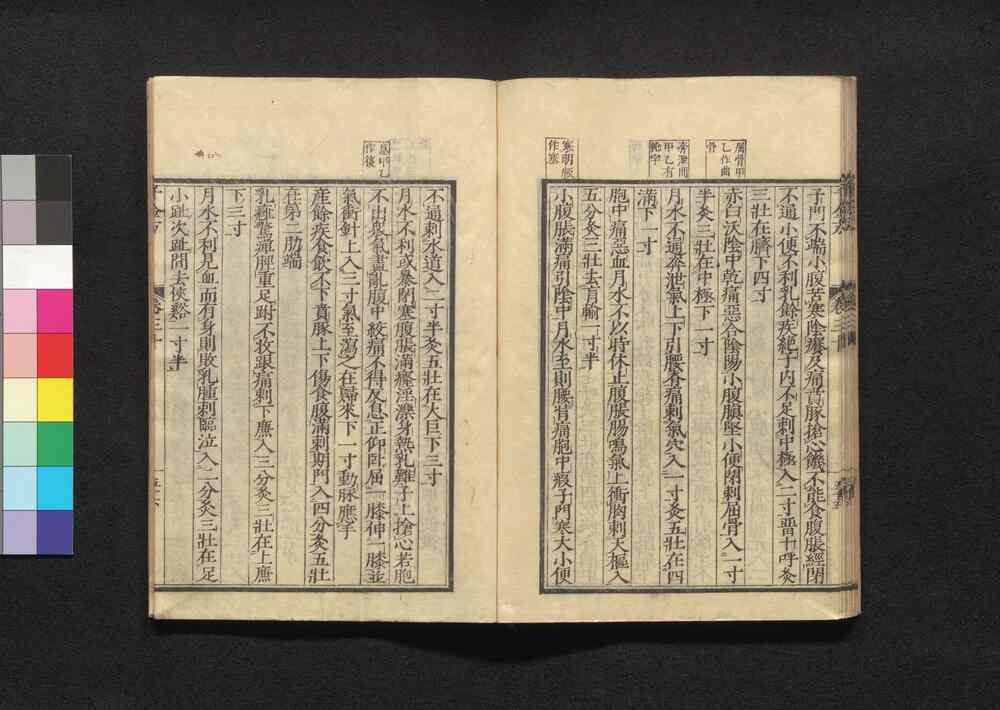 屈骨甲
乙作曲
骨
奔泄間
甲乙有
寒明版
作塞
子門不端小腹苦寒陰癢及痛賁豚搶心饑不能食腹脹經閉
不通小便不利乳餘疾絕子內不足刺中極入二寸留十呼灸
三壯在臍下四寸
赤白沃陰中乾痛惡合陰陽小腹䐜堅小便閉刺屈骨入一寸
半灸三壯在中極下一寸
月水不通奔泄氣上下引腰脊痛刺氣穴入一寸灸五壯在四
滿下一寸
胞中痛惡血月水不以時休止腹脹腸鳴氣上衝胸刺天樞入
五分灸三壯去肓輸一寸半
小腹脹滿痛引陰中月水至則腰背痛胞中瘕子門寒大小便
不通刺水道入二寸半灸五壯在大巨下三寸
㞋甲乙
作後
月水不利或暴閉塞腹脹滿癃淫濼身熱乳難子上搶心若胞
不出衆氣盡亂腹中絞痛不得反息正仰臥屈一膝伸一膝並
氣衝針上入三寸氣至瀉之在歸來下一寸動脉應手
產餘疾食飲不下賁豚上下傷食腹滿刺期門入四分灸五壯
在第二肋端
乳癰驚痹脛重足跗不收跟痛刺下廉入三分灸三壯在上廉
下三寸
月水不利見血而有身則敗乳腫刺臨泣入二分灸三壯在足
小趾次趾間去俠谿一寸半